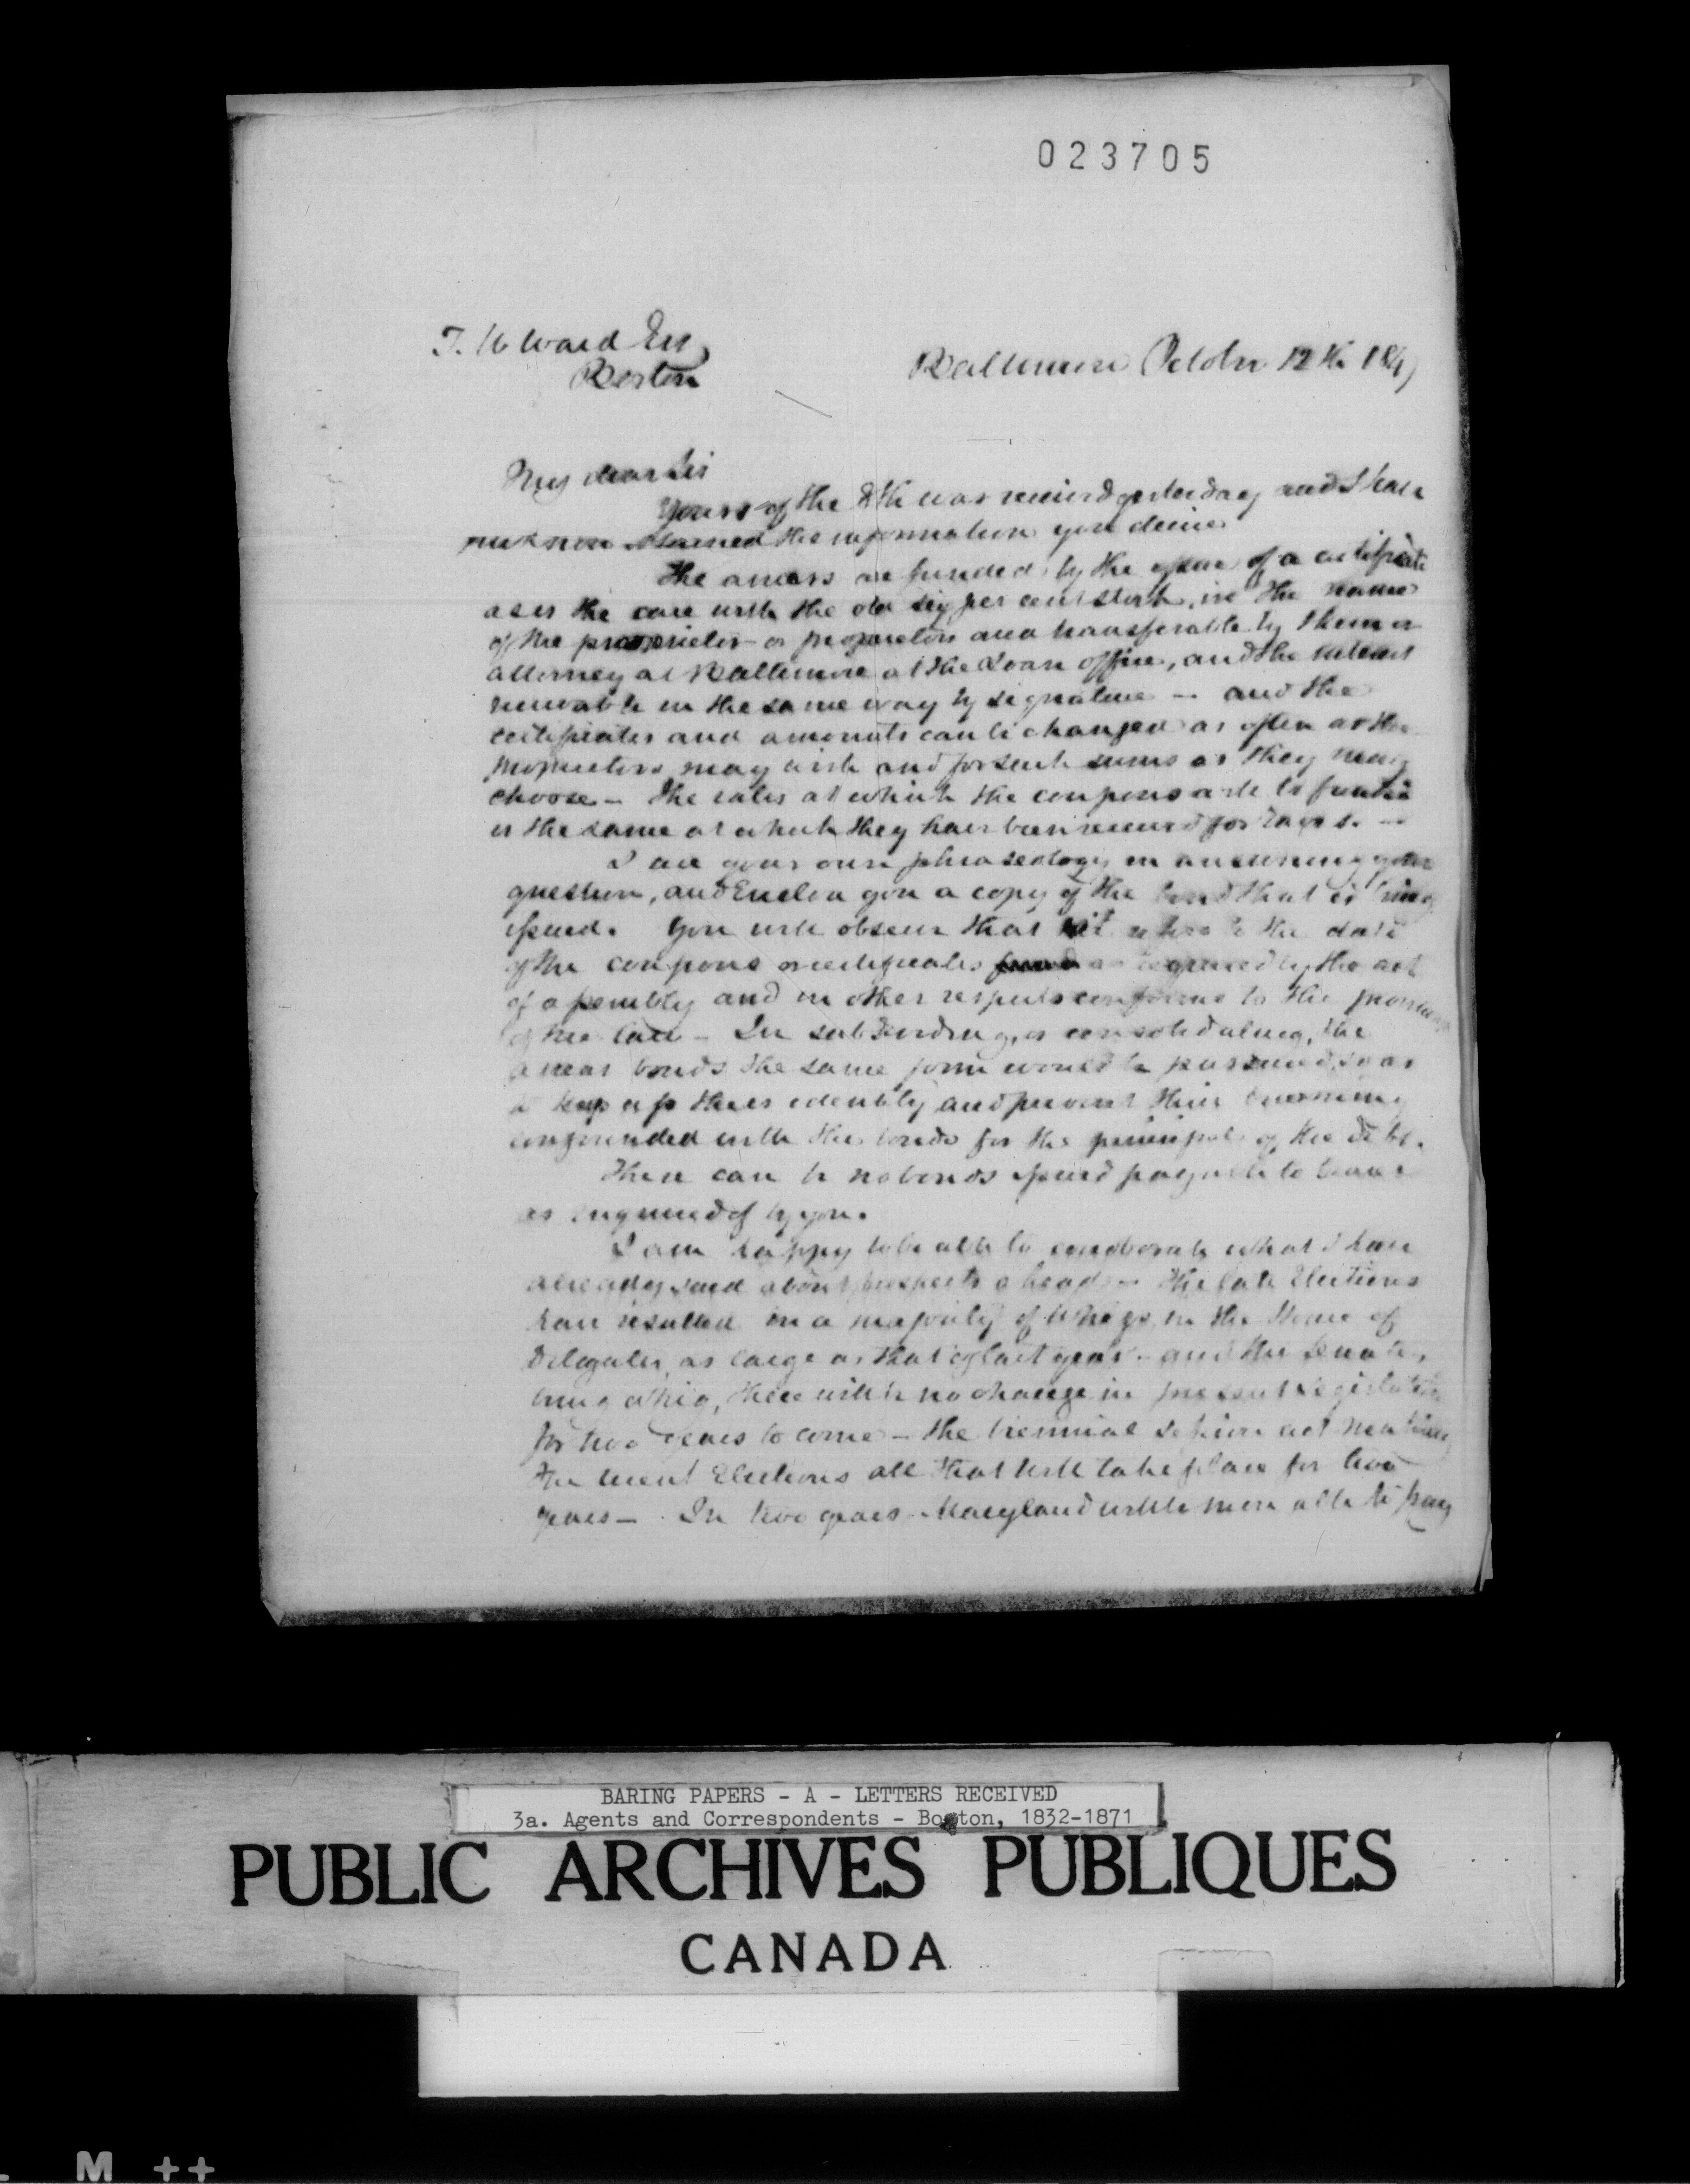 023705
T. W Ward Esq
Boston
Baltimore October 12th 1847
My dear Sir
Yours of the 8th was received yesterday and I have
just now obtained the information you desire
The arrears are funded by the issue of a certificate
as is the case with the old six per cent stock, in the name
of the proprietor or proprietors and transferable by them or
attorney at Baltimore at the Loan office, and the interest
receivable in the same way by signature - and the
certificates and amounts can be changed as often as the
proprietors may wish and for such sums as they may
choose - The rates at which the coupons are to be funded
is the same at which they have been received for taxes. -
I use your own phraseology in answering your
question, and Enclose you a copy of the bond that is being
issued. You will observe that it refers to the date
of the coupons or certificates as required by the act
of assembly and in other respects conforms to the provisions
of the law - In subdividing, or consolidating, the
arrear bonds the same form would be pursued, so as
to keep up their identity and prevent their becoming
confounded with the bonds for the principal of the debt.
There can be no bonds issued payable to bearer
as enquired of by you.
I am happy to be able to corroborate what I have
already said about prospects ahead - The late Elections
have resulted in a majority of Whigs in the House of
Delegates, as large as that of last year - and the Senate,
being whig, there will be no change in present legislation
for two years to come - the biennial session act making
the recent Elections all that will take place for two
years - In two years Maryland will be more able to pay
BARING PAPERS - A - LETTERS RECEIVED
3a. Agents and Correspondents - Boston, 1832-1871
PUBLIC ARCHIVES PUBLIQUES
CANADA
M ++